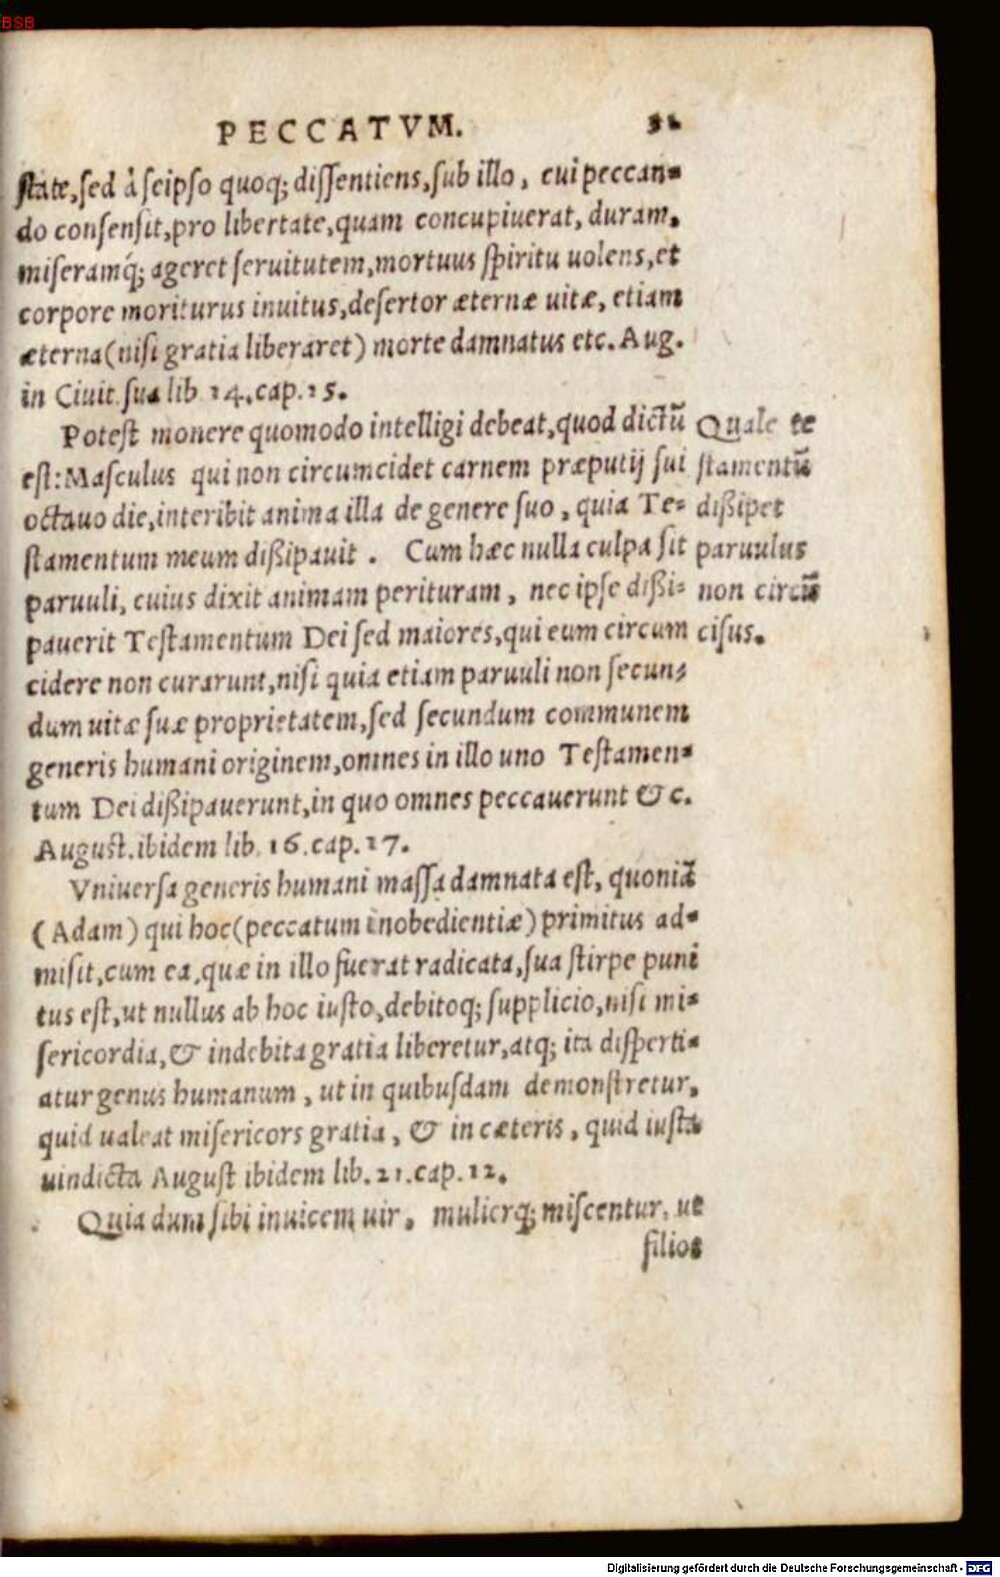 BSB
PECCATVM.
state,sed à seipso quoq; dissentiens,sub illo, cui peccan-
do consensit,pro libertate,quam concupiuerat, duram,
miseramq́; ageret seruitutem,mortuus spiritu uolens,et
corpore moriturus inuitus,desertor æternæ uitæ, etiam
æterna(nisi gratia liberaret) morte damnatus etc. Aug.
in Ciuit. sua lib 14.cap.15.
Potest monere quomodo intelligi debeat,quod dictū
est: Masculus qui non circumcidet carnem præputij sui
octauo die,interibit anima illa de genere suo, quia Te-
stamentum meum dißipauit. Cum hæc nulla culpa sit
paruuli, cuius dixit animam perituram, nec ipse dißi-
pauerit Testamentum Dei sed maiores,qui eum circum
cidere non curarunt,nisi quia etiam paruuli non secun-
dum uitæ suæ proprietatem,sed secundum communem
generis humani originem,omnes in illo uno Testamen-
tum Dei dißipauerunt,in quo omnes peccauerunt &c.
August.ibidem lib. 16.cap.27.
Quale te
stamentū
dißipet
paruulus
non circū
cisus.
Vniuersa generis humani massa damnata est, quoniā
(Adam) qui hoc(peccatum inobedientiæ) primitus ad-
misit,cum ea,quæ in illo fuerat radicata,sua stirpe puni
tus est,ut nullus ab hoc iusto,debitoq; supplicio,nisi mi-
sericordia,& indebita gratia liberetur,atq; ita disperti-
atur genus humanum, ut in quibusdam demonstretur,
quid ualeat misericors gratia, & in cæteris, quid iusta
uindicta August ibidem lib.21.cap.12.
Quia dum sibi inuicem uir, mulierq; miscentur, ut
filios
Digitalisierung gefördert durch die Deutsche Forschungsgemeinschaft - DFG